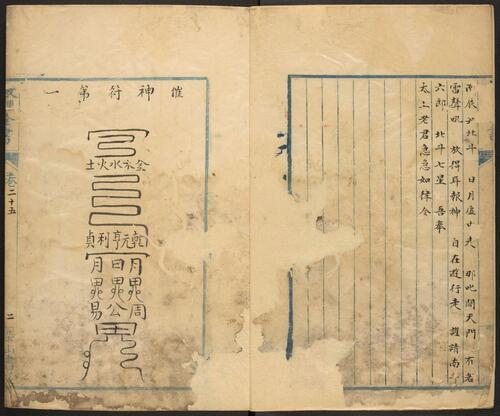 日月 中 那吒開天門 不者
雷聲吼 放得耳報神 自在遊行走 謹請南
六郎 北斗七星 吾奉
太上老君急急如律令
催神符第一
金木水火土
乾元亨利貞
月鬼周
日鬼公
月鬼易
卷二十五
二